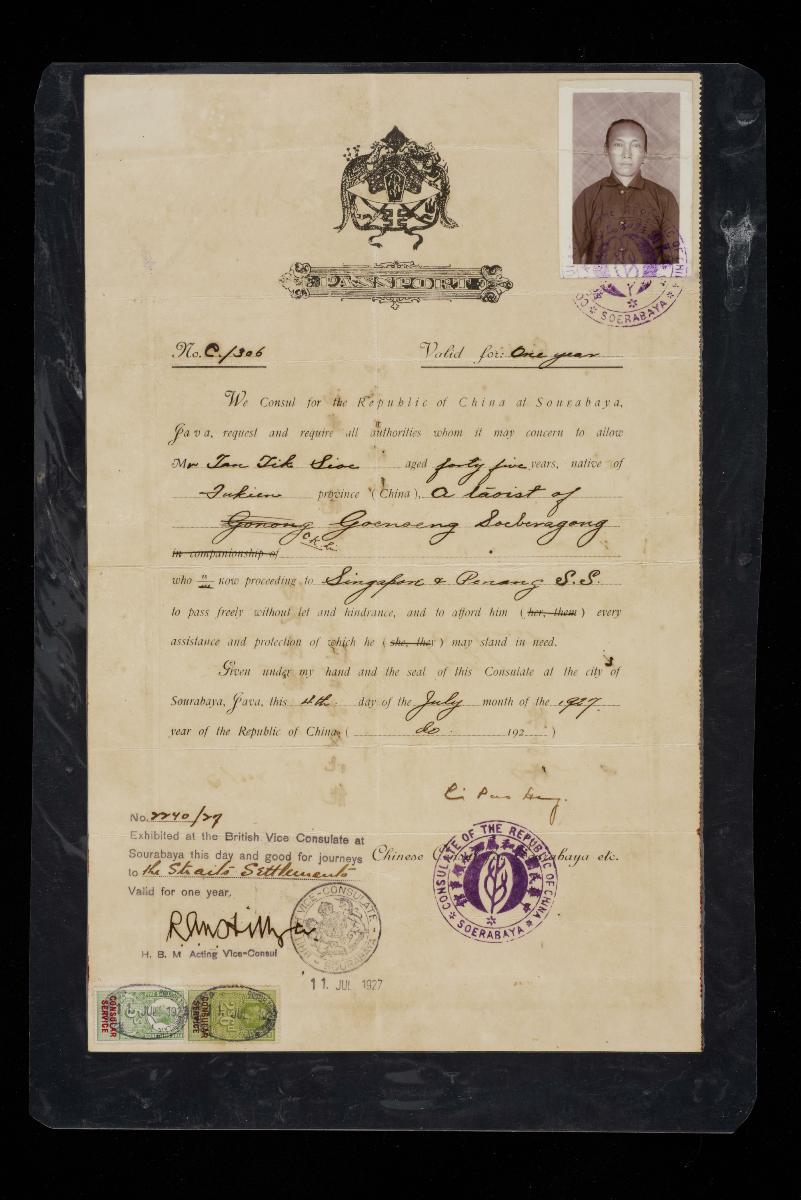 PASSPORT
CONSULATE OF THE REPUBLIC OF CHINA
* SOERABAYA *
No. C./306 Valid for: One year
We Consul for the Republic of China at Sourabaya,
Java, request and require all authorities whom it may concern to allow
Mr Tan Tik Sioe aged forty five years, native of
Fukien province (China), a taoist of
Gonong Goenoeng Soeberagong
in companionship of
who is now proceeding to Singapore & Penang S.S.
to pass freely without let and hindrance, and to afford him (her, them) every
assistance and protection of which he (she, they) may stand in need.
Given under my hand and the seal of this Consulate at the city of
Sourabaya, Java, this 4th. day of the July month of the 1927.
year of the Republic of China ( do. 192 )
No. 2240/27
Exhibited at the British Vice Consulate at
Sourabaya this day and good for journeys
to the Straits Settlements
Valid for one year.
H. B. M Acting Vice-Consul
Chinese Consul Sourabaya etc.
CONSULATE OF THE REPUBLIC OF CHINA
* SOERABAYA *
BRITISH VICE-CONSULATE
SOURABAYA
11 JUL 1927
CONSULAR SERVICE
CONSULAR SERVICE